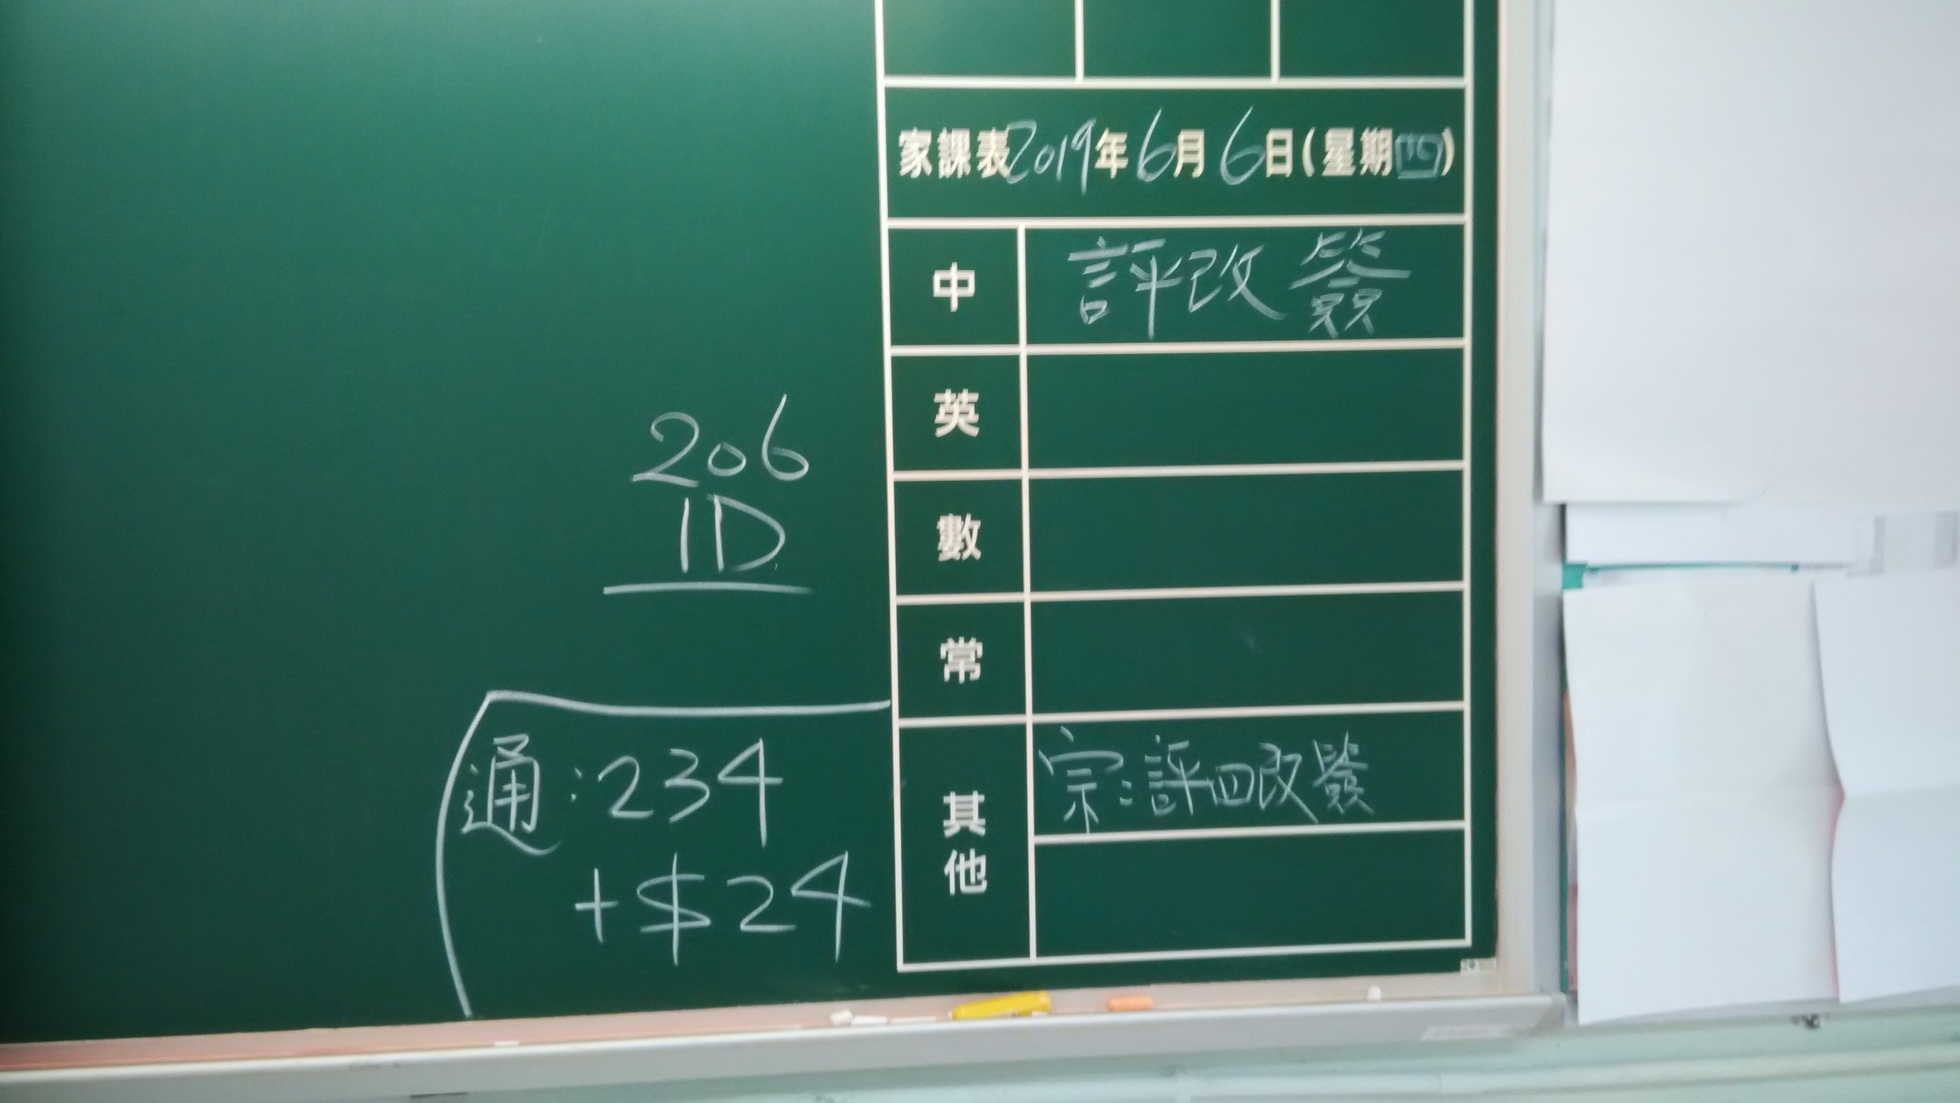 家課表2019年6月6日(星期四)
中 評改簽
英
數
常
其他 宗:評四改簽
206
1D
通:234
+$24